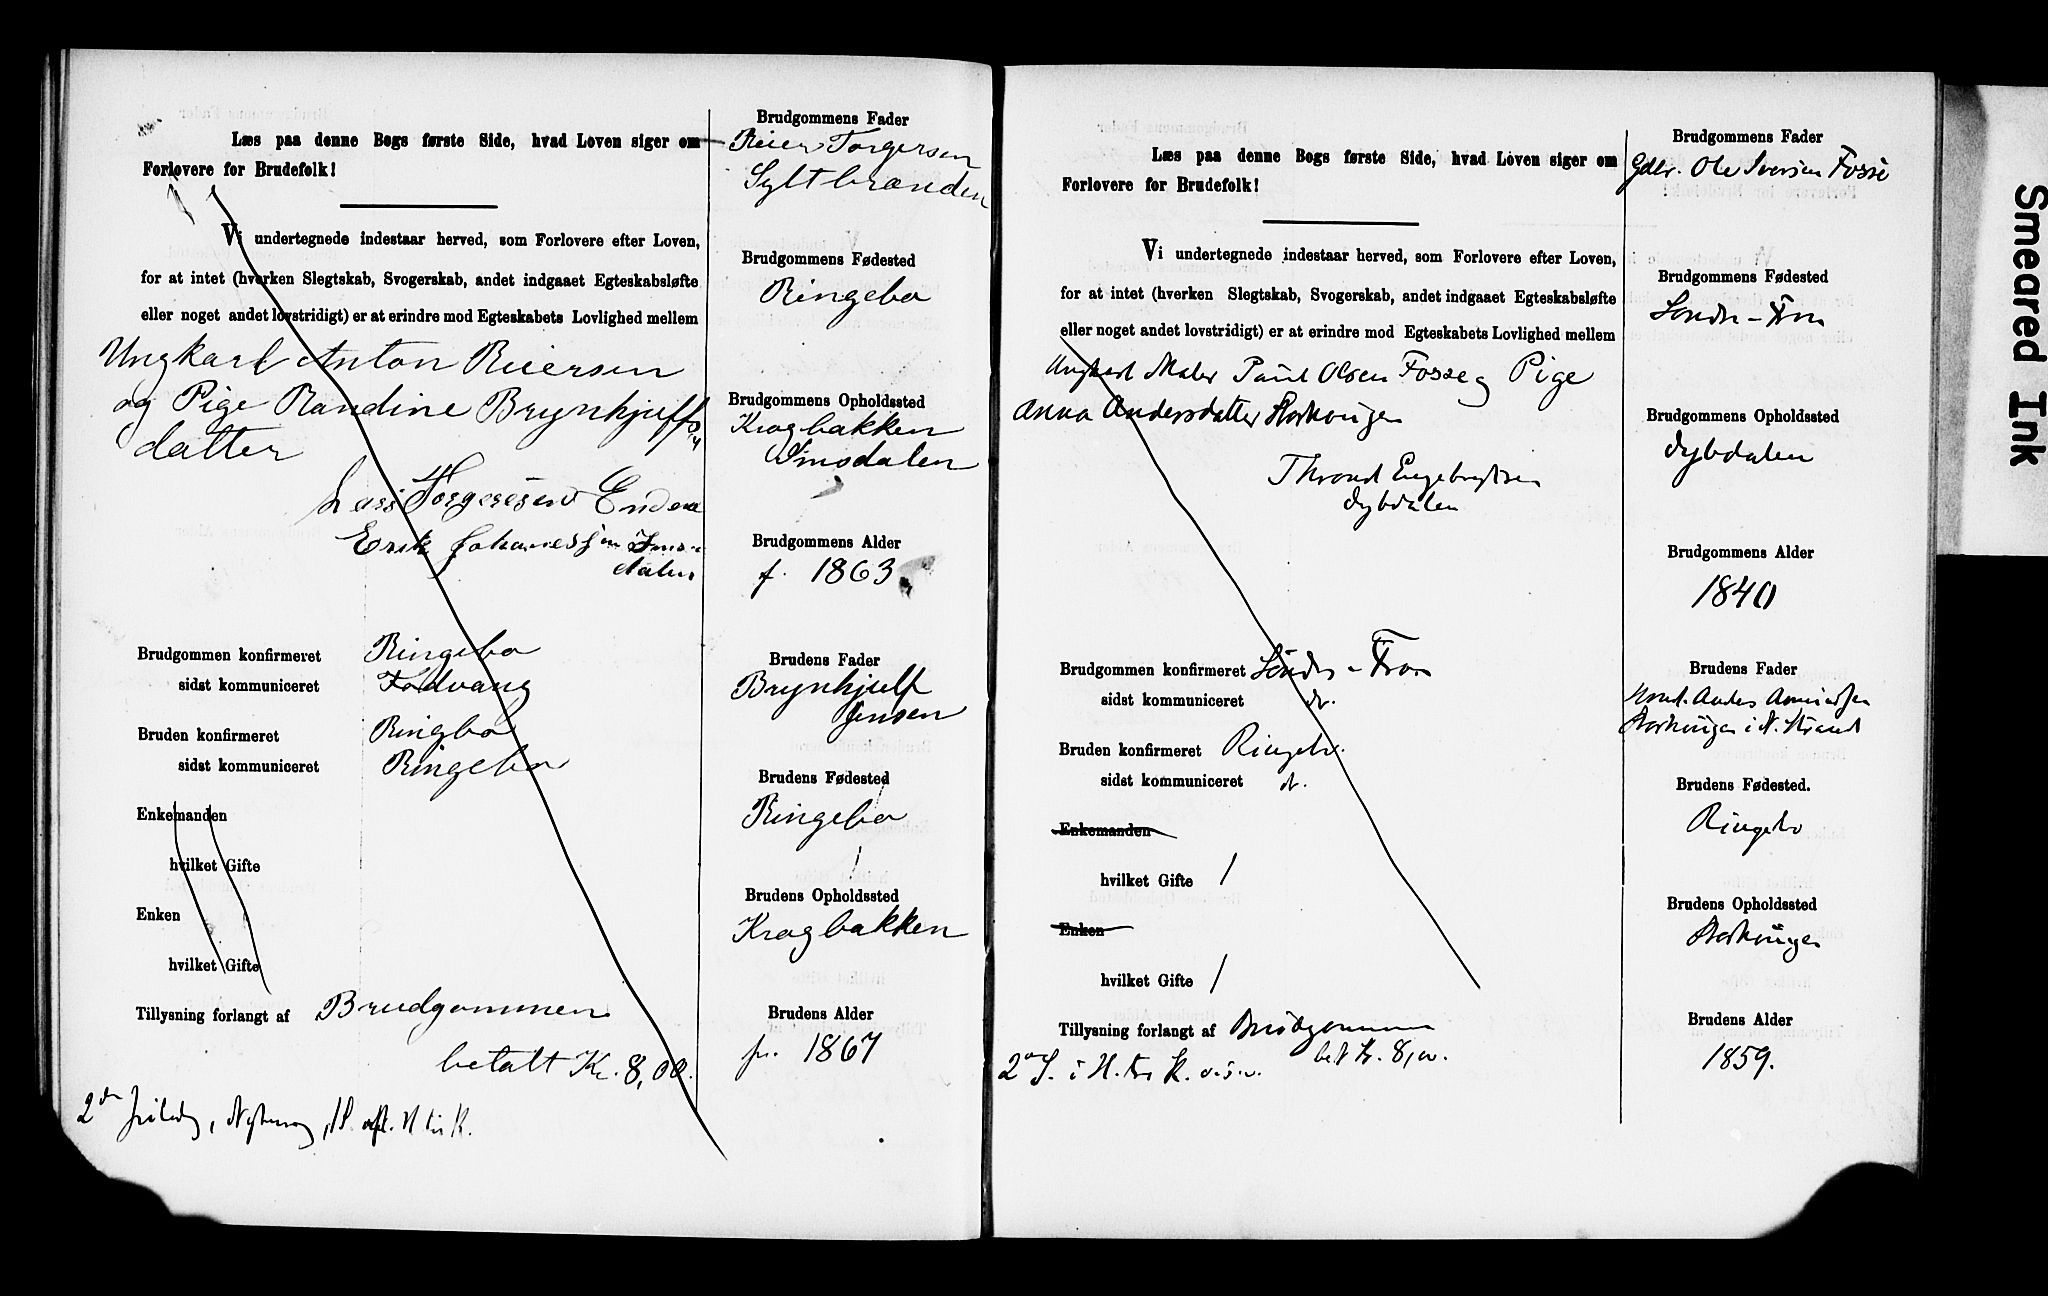 Læs paa denne Bogs første Side, hvad Loven siger om
Forlovere for Brudefolk!
Vi undertegnede indestaar herved, som Forlovere efter Loven,
for at intet (hverken Slegtskab, Svogerskab, andet indgaaet Egteskabsløfte
eller noget andet lovstridigt) er at erindre mod Egteskabets Lovlighed mellem
Ungkarl Anton Reiersen
og Pige Randine Brynhjulfs
datter
Lars Torgersen Enden
Erik Johanessen Ims-
dalen
Brudgommen konfirmeret Ringebo
sidst kommuniceret Foldvang
Bruden konfirmeret Ringbo
sidst kommuniceret Ringebo
Enkemanden
hvilket Gifte
Enken
hvilket Gifte
Tillysning forlangt af Brudgommen
betalt Kr. 8,00.
Brudgommens Fader
Reier Torgersen
Syltbranden
Brudgommens Fødested
Ringebo
Brudgommens Opholdssted
Kragbakken
Imsdalen
Brudgommens Alder
f. 1863
Brudens Fader
Brynhjulf
Jensen
Brudens Fødested
Ringebo
Brudens Opholdssted
Kragbakken
Brudens Alder
1867
Læs paa denne Bogs første Side, hvad Loven siger om
Forlovere for Brudefolk!
Vi undertegnede indestaar herved, som Forlovere efter Loven,
for at intet (hverken Slegtskab, Svogerskab, andet indgaaet Egteskabsløfte
eller noget andet lovstridigt) er at erindre mod Egteskabets Lovlighed mellem
Ungkarl Maler Paul Olsen Fosse og Pige
Anna Andersdatter Storhaugen
Thrond Engebregtsen
Dybdalen
Brudgommen konfirmeret Søndre-Fron
sidst kommuniceret do.
Bruden konfirmeret Ringebo.
sidst kommuniceret do.
Enkemanden
hvilket Gifte /
Enken
hvilket Gifte /
Tillysning forlangt af Brudgommen
bet. Kr. 8,00.
Brudgommens Fader
Gdbr. Ole Iversen Fosse
Brudgommens Fødested
Søndre-Fron
Brudgommens Opholdssted
Dybdalen
Brudgommens Alder
1840
Brudens Fader
Anders Amundsen
Storhaugen i N.
Brudens Fødested.
Ringebo
Brudens Opholdssted
Storhaugen
Brudens Alder
1859.
Smeared Ink